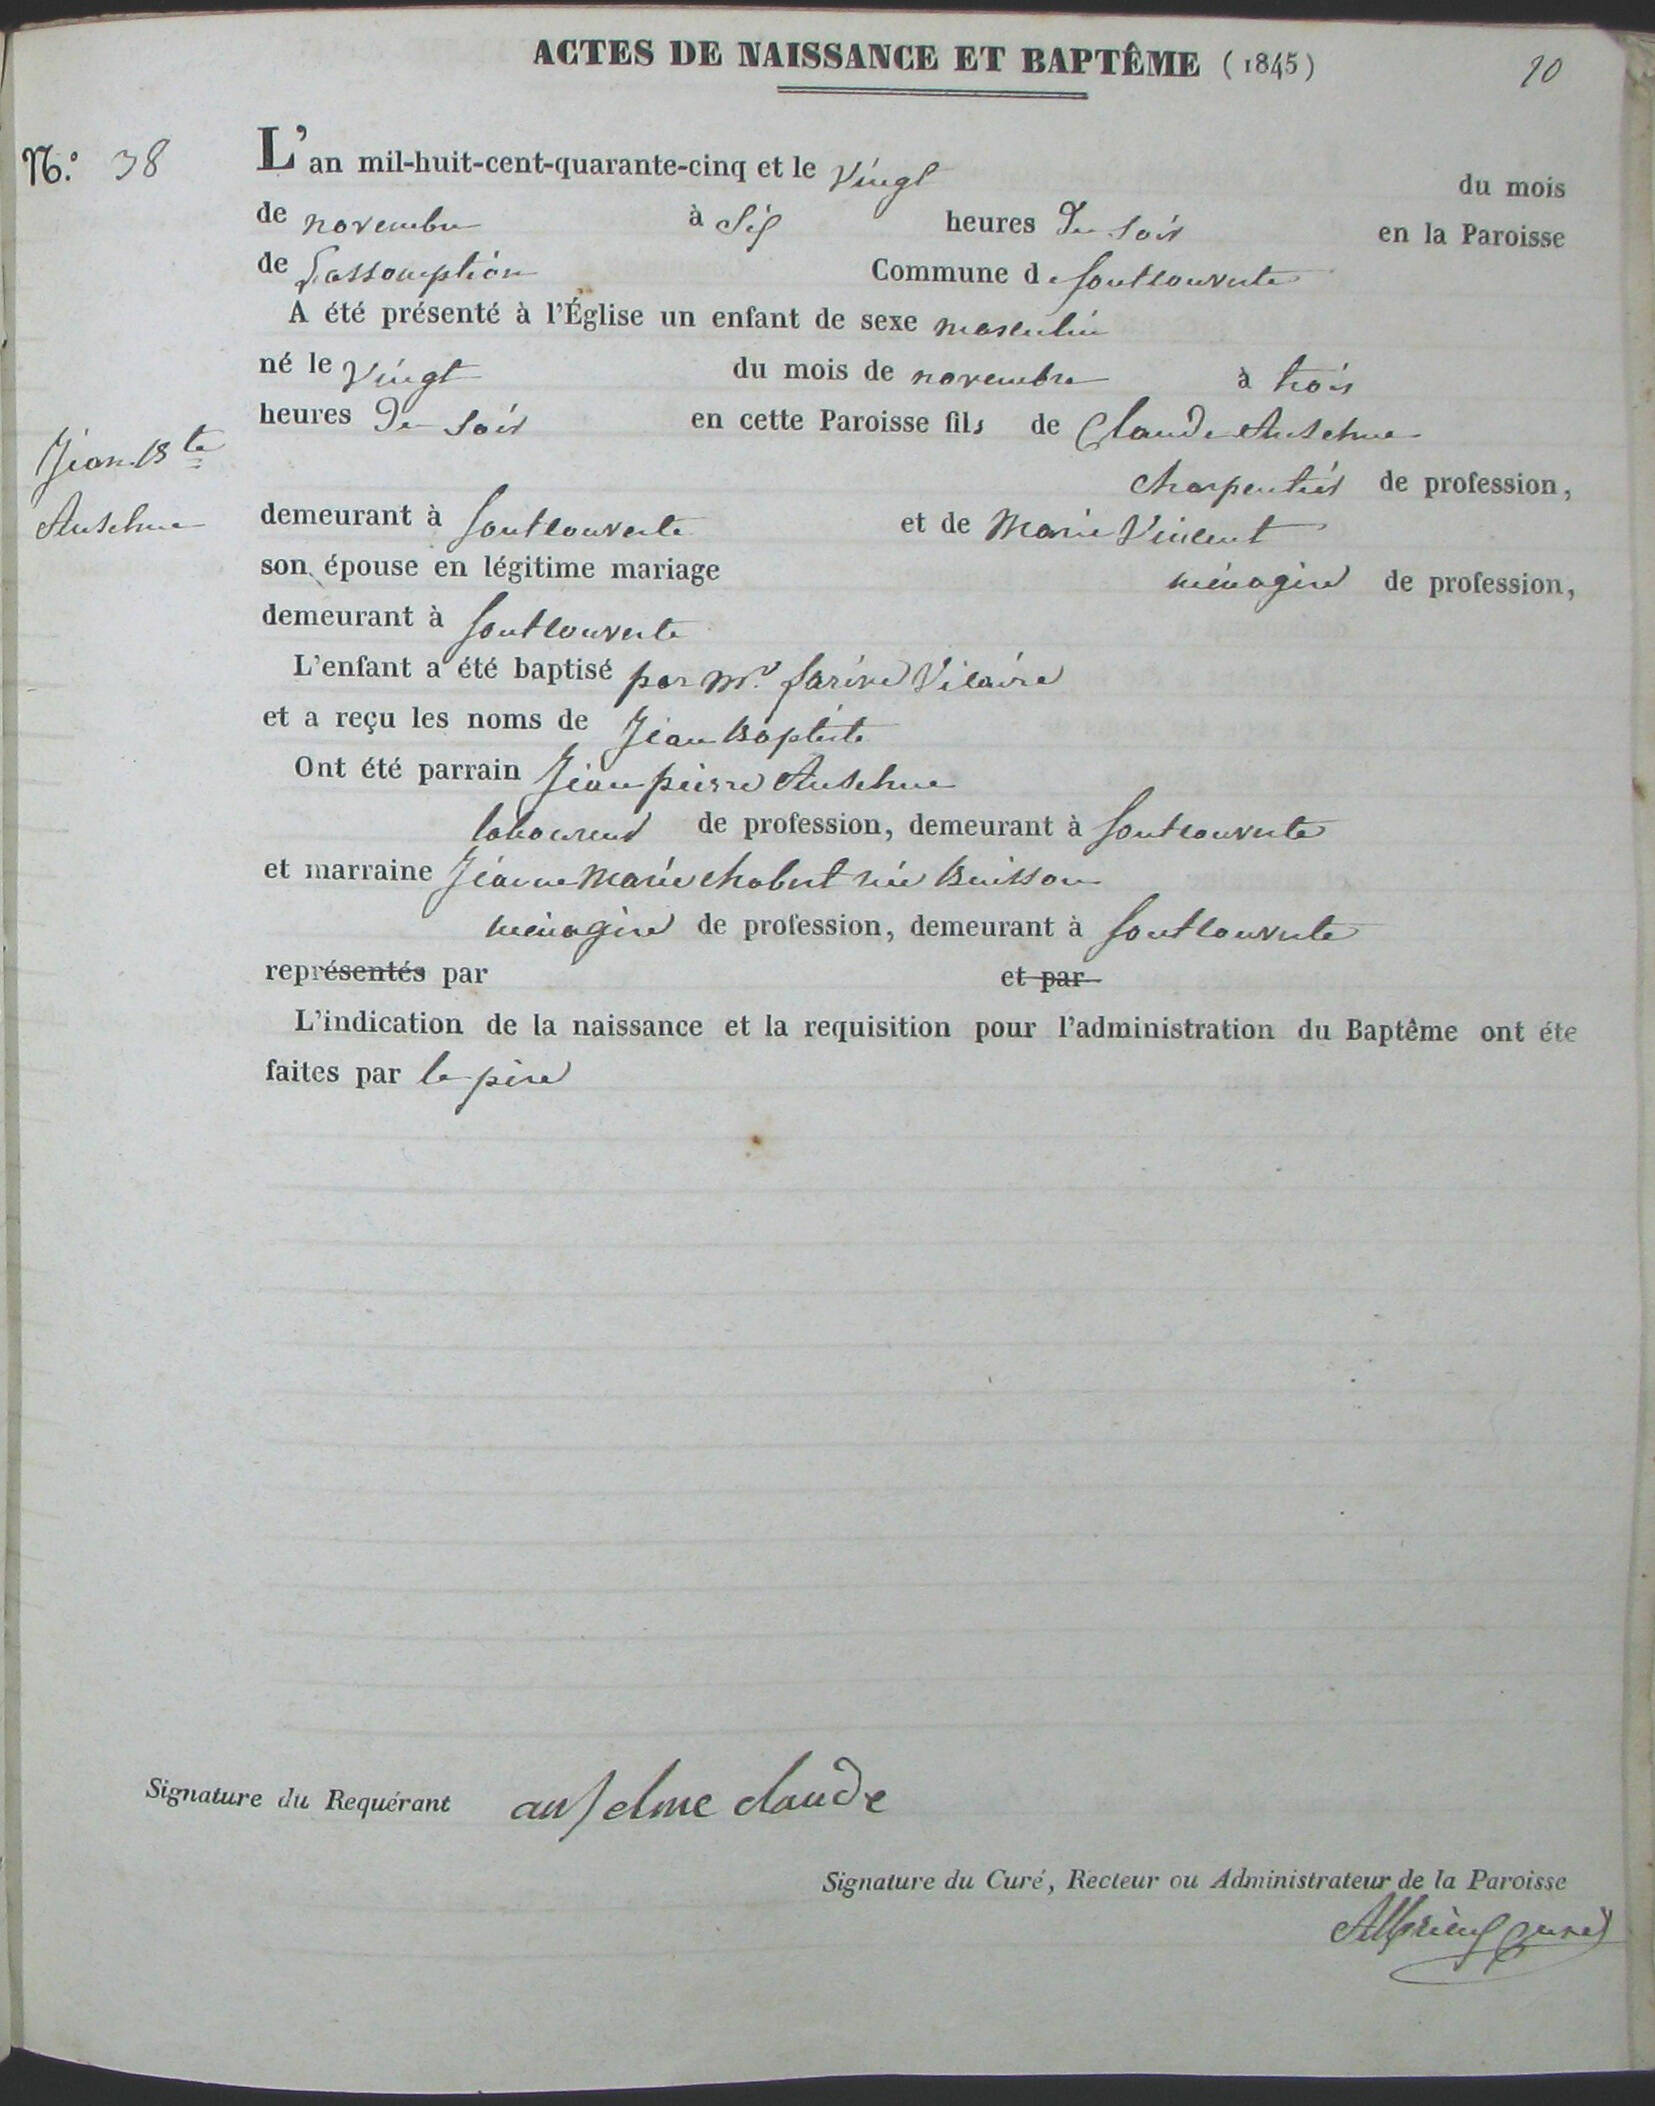 ACTES DE NAISSANCE ET BAPTÊME (1845)
N.º 38
L'an mil-huit-cent-quarante-cinq et le vingt du mois
de novembre à six heures du soir en la Paroisse
de Lassomption Commune de fontcouverte
A été présenté à l'Église un enfant de sexe masculin
né le vingt du mois de novembre à trois
heures du soir en cette Paroisse fils de Claude Anselme
charpentier de profession,
Jean Bte
Anselme
demeurant à fontcouverte et de Marie Vincent
son épouse en légitime mariage ménagère de profession,
demeurant à fontcouverte
L'enfant a été baptisé par Mr. Vicaire
et a reçu les noms de Jean Baptiste
Ont été parrain Jean pierre Anselme
laboureur de profession, demeurant à fontcouverte
et marraine Jeanne Marie chabert née Buisson
ménagère de profession, demeurant à fontcouverte
représentés par et par
L'indication de la naissance et la requisition pour l'administration du Baptême ont éte
faites par le père
Signature du Requérant anselme claude
Signature du Curé, Recteur ou Administrateur de la Paroisse
curé